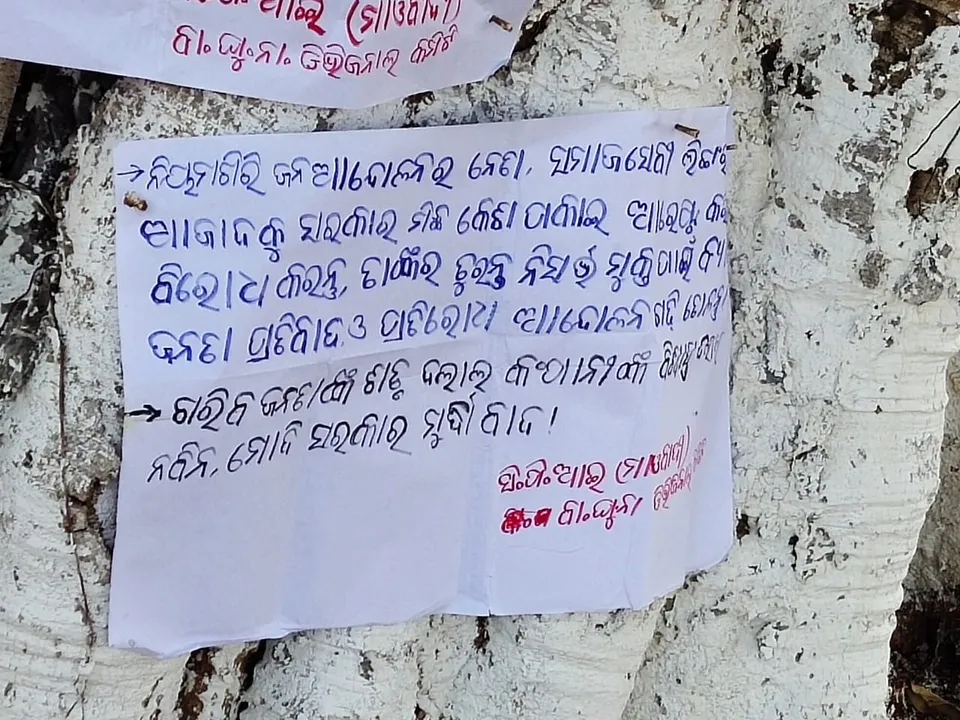 ଆଇ (ମାଓବାଦୀ)
ବାଂଘୁଂନାଂ ଡିଭିଜନାଲ କମିଟି
→ ନିୟମଗିରି ଜନଆନ୍ଦୋଳନର ନେତା, ସମାଜସେବୀ
ଆଜାଦଙ୍କୁ ସରକାର ମିଛ କେଶ ଡାକାଇ ଆରେଷ୍ଟ
ବିରୋଧ କରନ୍ତୁ, ତାଙ୍କର ତୁରନ୍ତ ନିଃସର୍ତ୍ତ ମୁକ୍ତି ପାଇଁ
ଜନତା ପ୍ରତିବାଦ ଓ ପ୍ରତିରୋଧ ଆନ୍ଦୋଳନ ଗଢ଼ି ତୋଳନ୍ତୁ
→ ଗରିବ ଜନତାଙ୍କ ଶତ୍ରୁ ଦଲାଲ
ନବିନ, ମୋଦି ସରକାର ମୁର୍ଦ୍ଦାବାଦ!
ସି.ପି.ଆଇ (ମାଓବାଦୀ)
ବାଂଘୁଂନା